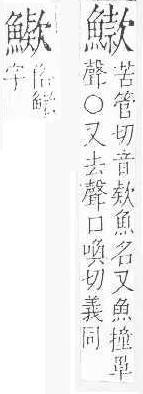 苦管切音欵魚名又魚撞罩
聲○又去聲口喚切義同
俗
字